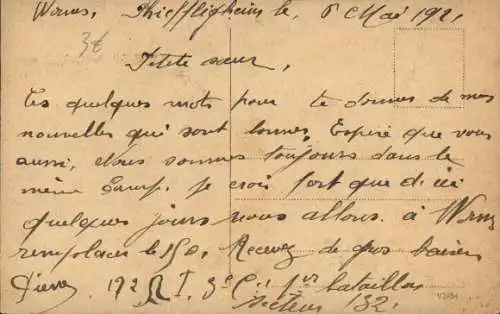 Worms, Pfiffligheim le, 6 Mai 1921
3€
Petite sœur,
Ces quelques mots pour te donner de mes
nouvelles qui sont bonnes, Espère que vous
aussi, Nous sommes toujours dans le
même Camp. je crois fort que d'ici
quelques jours nous allons à Worms
remplacer le 150. Recevez de gros baisers
Pierre 172 R I, 3e Cie 1er bataillon
Secteur 182.